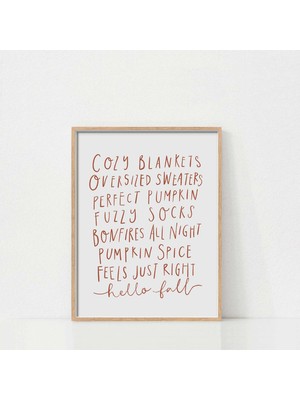 COZY BLANKETS
OVERSIZED SWEATERS
PERFECT PUMPKIN
FUZZY SOCKS
BONFIRES ALL NIGHT
PUMPKIN SPICE
FEELS JUST RIGHT
hello fall